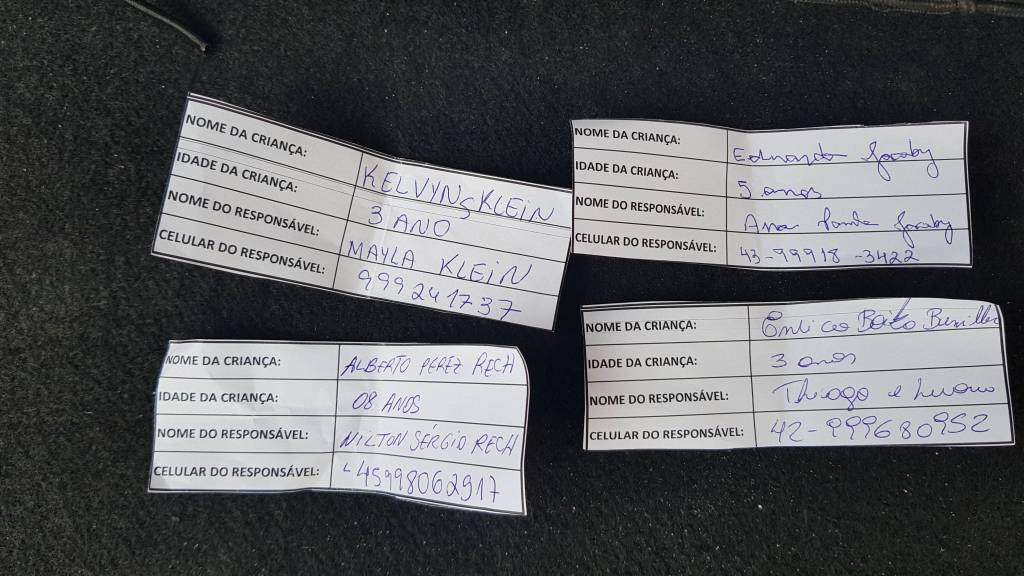 NOME DA CRIANÇA: KELVYN KLEIN
IDADE DA CRIANÇA: 3 ANO
NOME DO RESPONSÁVEL: MAYLA KLEIN
CELULAR DO RESPONSÁVEL: 999241737
NOME DA CRIANÇA: Eduardo Jacoby
IDADE DA CRIANÇA: 5 anos
NOME DO RESPONSÁVEL: Ana Paula Jacoby
CELULAR DO RESPONSÁVEL: 43-99918-3422
NOME DA CRIANÇA: ALBERTO PEREZ RECH
IDADE DA CRIANÇA: 08 ANOS
NOME DO RESPONSÁVEL: NILTON SÉRGIO RECH
CELULAR DO RESPONSÁVEL: 45998062917
NOME DA CRIANÇA:
IDADE DA CRIANÇA: 3 anos
NOME DO RESPONSÁVEL: Thiago e
CELULAR DO RESPONSÁVEL: 42-999680952